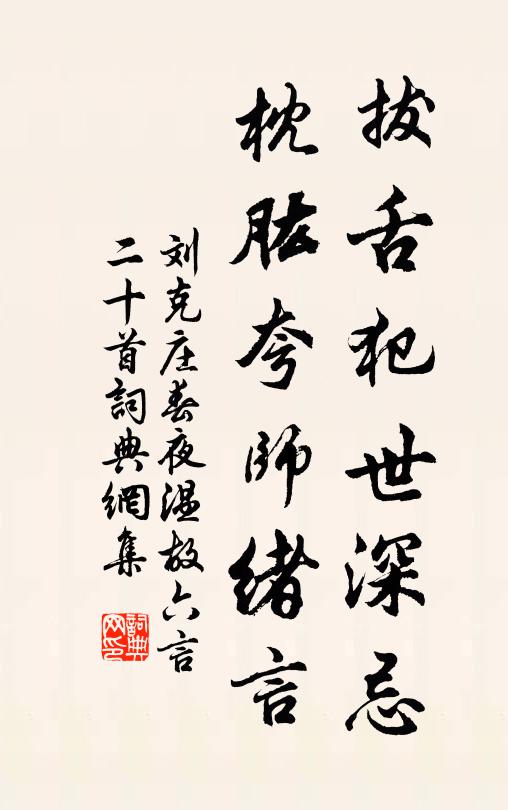 拔舌犯世深忌
枕肱夸師緒言
刘克庄春夜温故六言
二十首詞典網集
詞典网印